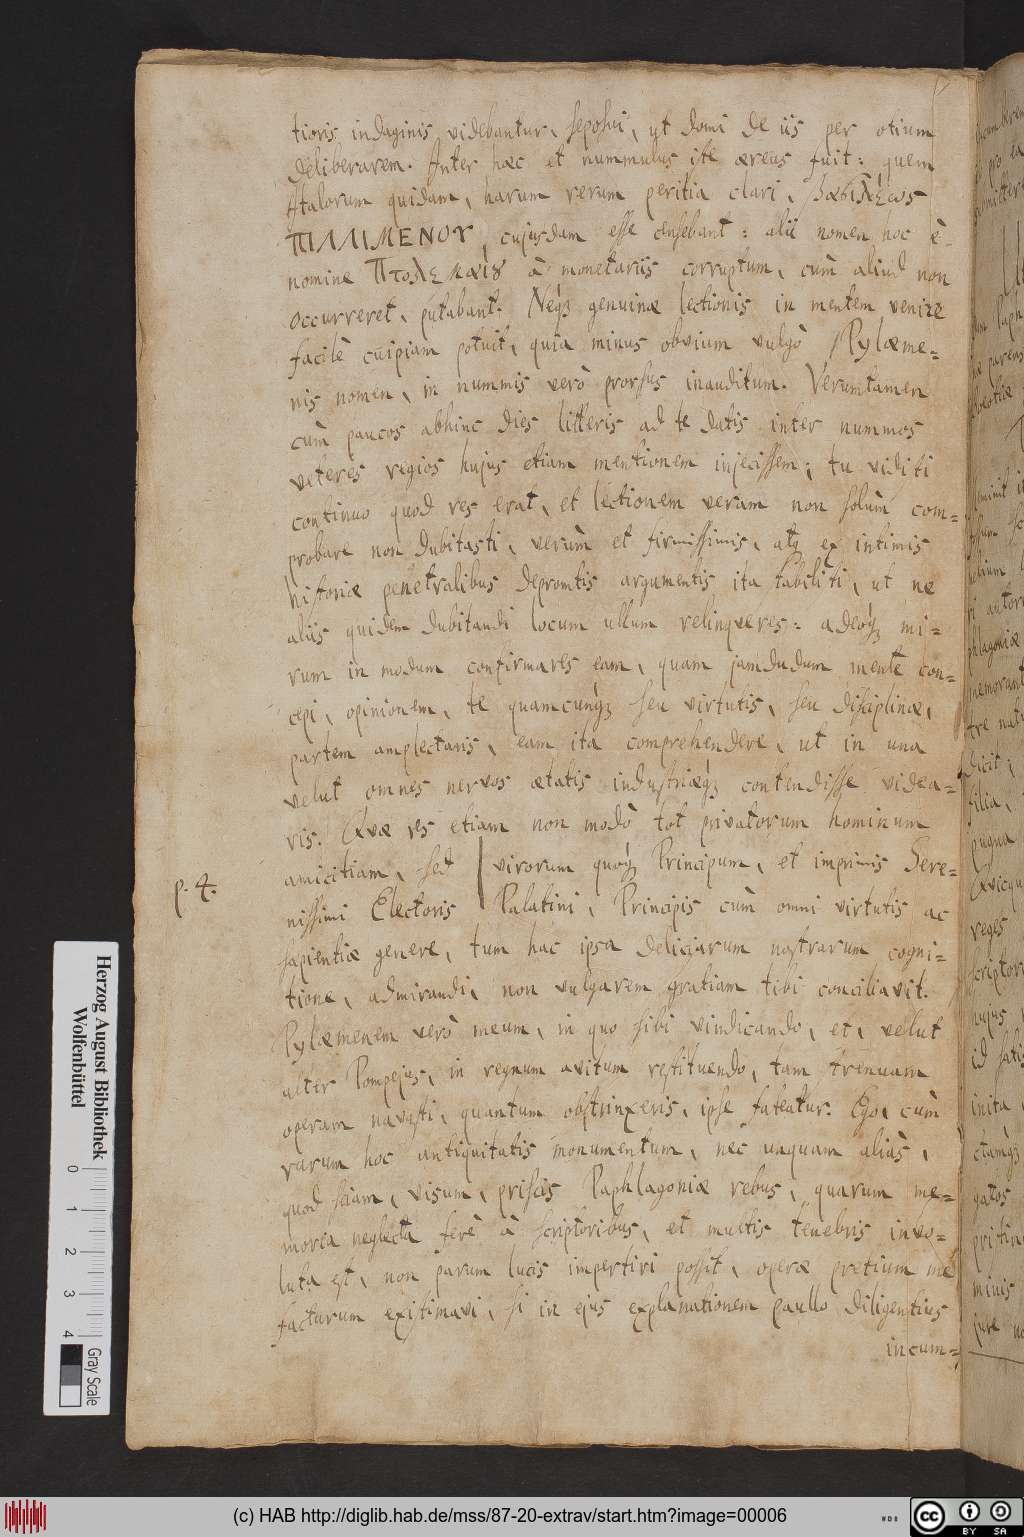 tioris indaginis videbantur, seposui, ut domi de iis per otium
deliberarem. Inter hæc et nummulus iste æreus fuit: quem
Italorum quidam, harum rerum peritia clari, βασιλέως
ΠΙΛΙΜΕΝΟΥ, cujusdam esse censebant: alii nomen hoc è
nomine Πτολεμαίȣ à monetariis corruptum, cùm aliud non
occurreret, putabant. Neq́; genuinæ lectionis in mentem venire
facilè cuipiam potuit, quia minus obvium vulgò Pylæme=
nis nomen, in nummis verò prorsus inauditum. Veruntamen
cùm paucos abhinc dies litteris ad te datis inter nummos
veteres regios hujus etiam mentionem injecissem; tu viditi
continuo quod res erat, et lectionem veram non solùm com=
probare non dubitasti, verùm et firmissimis, atq; ex intimis
historiæ penetralibus depromtis argumentis ita stabiliti, ut ne
aliis quidem dubitandi locum ullum relinqueres: adeoq́; mi=
rum in modum confirmares eam, quam jamdudum mente con=
cepi, opinionem, te quamcunq́; seu virtutis, seu disciplinæ,
partem amplectaris, eam ita comprehendere, ut in una
velut omnes nervos ætatis industriæq́; contendisse videa=
ris. Quæ res etiam non modò tot privatorum hominum
amicitiam, sed virorum quoq́; Principum, et imprimis Sere=
p. 4.
nissimi Electoris Palatini, Principis cùm omni virtutis ac
sapientiæ genere, tum hac ipsa deliciarum nostrarum cogni=
tione, admirandi, non vulgarem gratiam tibi conciliavit.
Pylæmenem verò meum, in quo sibi vindicando, et, velut
alter Pompejus, in regnum avitum restituendo, tam strenuam
operam navasti, quantum obstrinxeris, ipse fateatur. Ego, cùm
rarum hoc antiquitatis monumentum, nec unquam aliàs,
quod sciam, visum, priscis Paphlagoniæ rebus, quarum me=
moria neglecta ferè à scriptoribus, et multis tenebris invo=
luta est, non parum lucis impertiri possit, operæ pretium me
facturum existimavi, si in ejus explanationem paullo diligentius
incum=
Herzog August Bibliothek
Wolfenbüttel
0 1 2 3 4
Gray Scale
(c) HAB http://diglib.hab.de/mss/87-20-extrav/start.htm?image=00006
cc BY SA